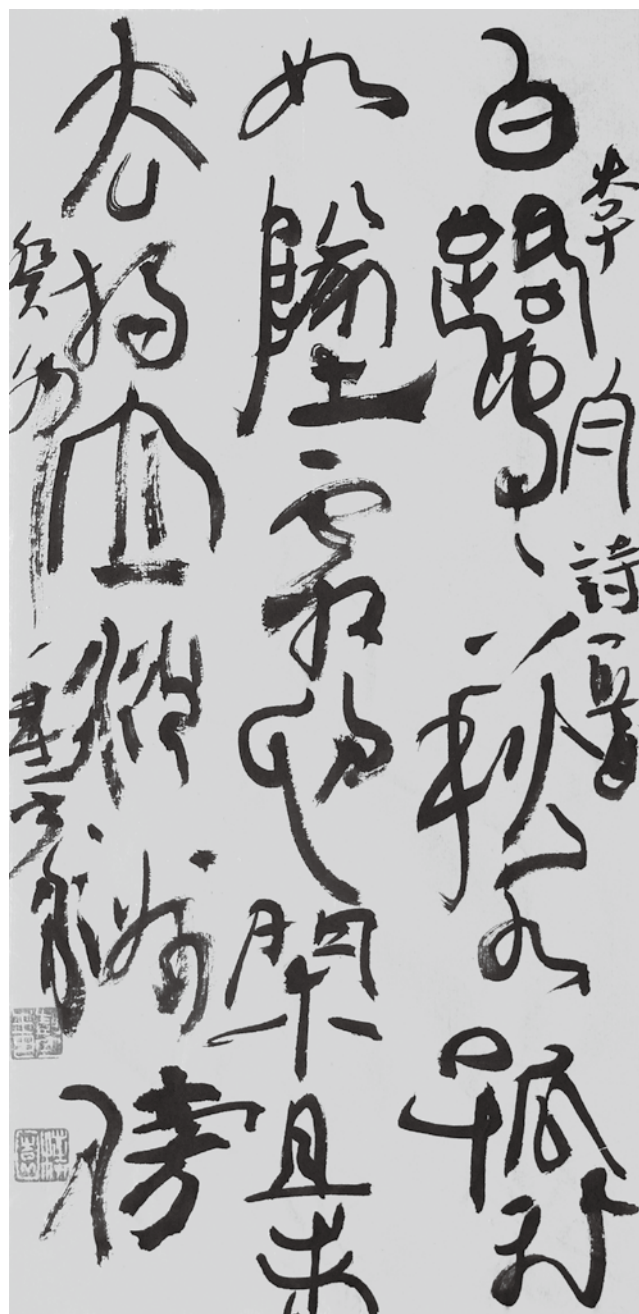 李白詩一首
白鷺下秋水孤飛
如墜霜心閑且未
去獨立沙洲傍
癸卯